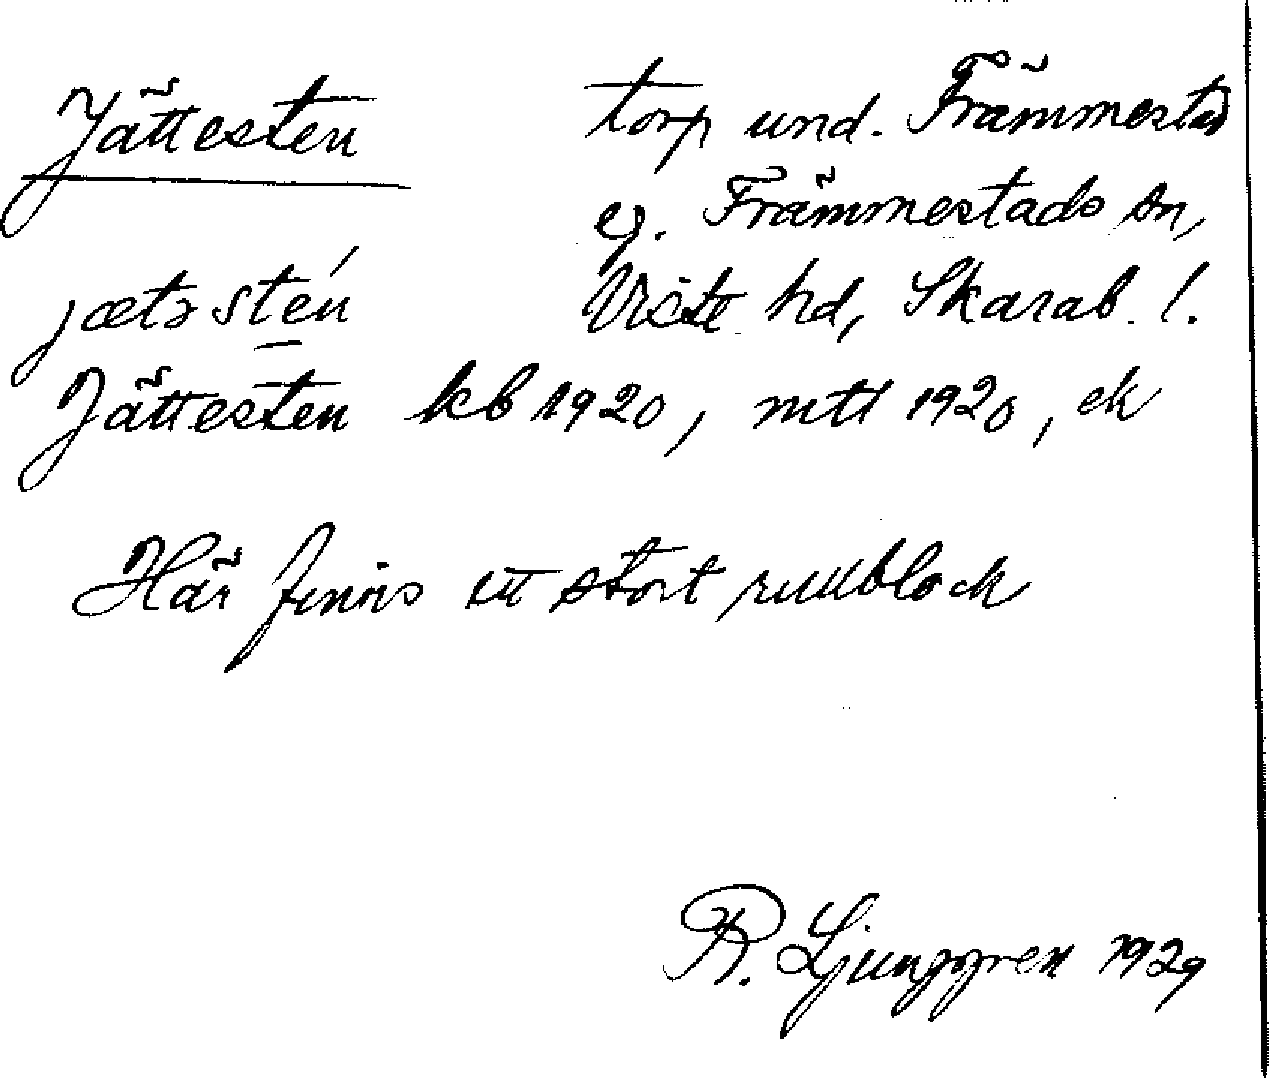 Jättesten torp und. Främmestad
eg. Främmestads sn,
jætə sten Viste hd, Skarab. l.
Jättesten kb 1920, mtl 1920, ek
Här finns ett stort rullblock
R. Ljunggren 1929